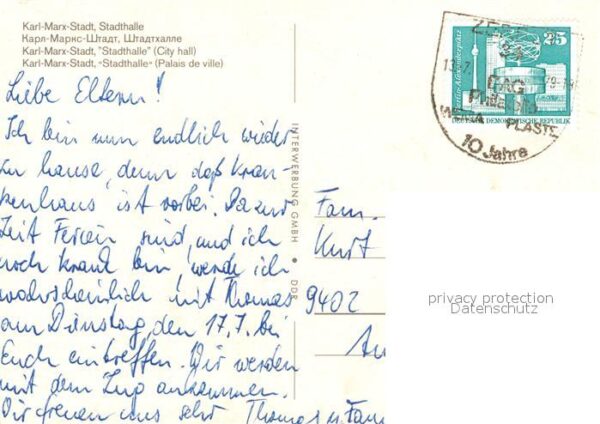 Karl-Marx-Stadt, Stadthalle
Карл-Маркс-Штадт, Штадтхалле
Karl-Marx-Stadt, "Stadthalle" (City hall)
Karl-Marx-Stadt, «Stadthalle» (Palais de ville)
Liebe Eltern!
Ich bin nun endlich wieder
zu hause, denn daß Kran-
kenhaus ist vorbei. Da zur
Zeit Ferien sind, und ich
noch krank bin, werde ich
wahrscheinlich mit Thomas
am Dienstag, den 17.7. bei
Euch eintreffen. Wir werden
mit dem Zug ankommen.
Wir freuen uns sehr Thomas u. Fam
INTERWERBUNG GMBH • DDR
Fam.
Kurt
9402
Au
Berlin-Alexanderplatz
25
DEUTSCHE DEMOKRATISCHE REPUBLIK
13.7.
79-14
PLASTE
10 Jahre
privacy protection
Datenschutz